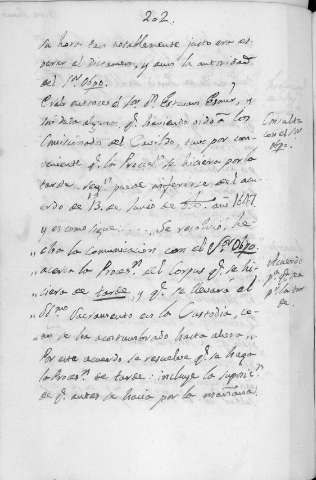 202.
su hora tan notablemente, justo era es-
perar el dictamen, y aun la autoridad
del Sr. Obpo.
Eralo entonces el Sor. Dn. Estevan Esmir, y
sin duda alguna, q. haviendo oido a los
Comisionados del Cavildo, tuvo por con-
veniente q. la Procesn. se hiciera por la
tarde, segn. puede inferirse del acu-
erdo de 13. de Junio de dho. año 1647
y es como sigue. Se resolvió, he-
„cha la comunicacion con el Sr. Obpo.
„acerca la Procesn. del Corpus q. se hi-
„ciera de tarde, y q. se llevara el
„SSmo. Sacramento en la Custodia, co-
„mo se ha acostumbrado hasta ahora„
Por este acuerdo se resuelve q. se haga
la Procesn. de tarde: incluye la suposicn.
de q. antes se hacia por la mañana.
Consulta
con el Sr.
Obpo.
Acuerdo